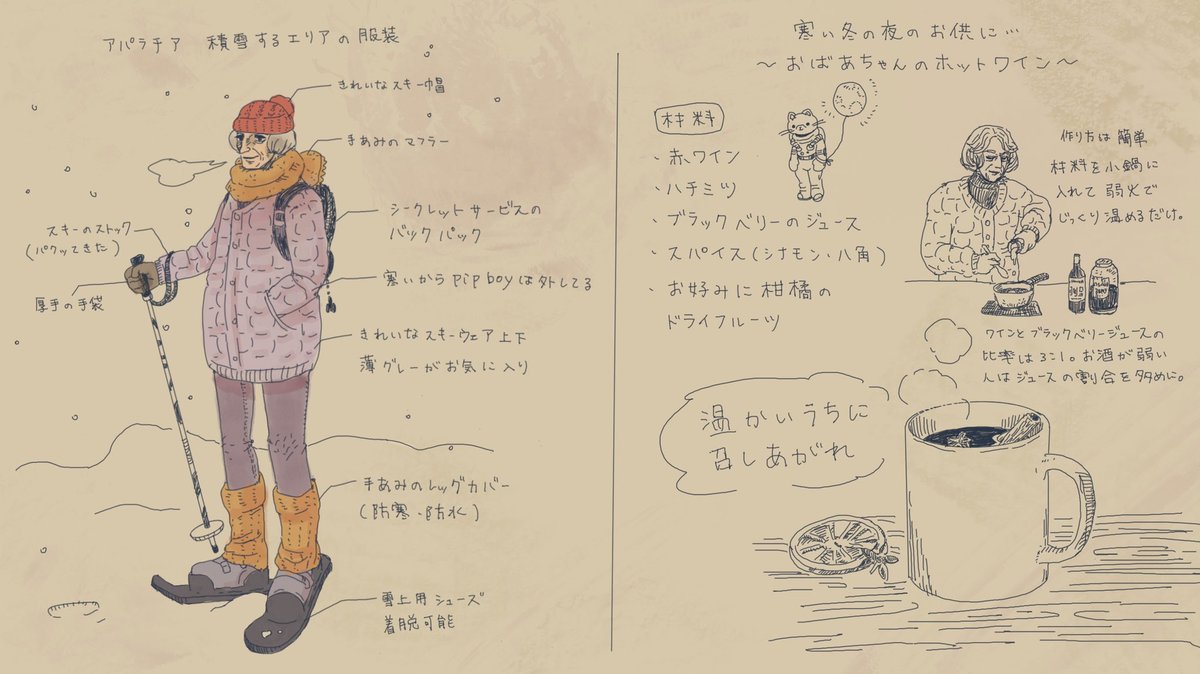 アパラチア 積雪するエリアの服装
きれいなスキー帽
手あみのマフラー
シークレットサービスの
バックパック
スキーのストック
(パクッてきた)
寒いからpip boyは外してる
厚手の手袋
きれいなスキーウェア上下
薄グレーがお気に入り
手あみのレッグカバー
(防寒・防水)
雪上用シューズ
着脱可能
寒い冬の夜のお供に…
〜おばあちゃんのホットワイン〜
材料
・赤ワイン
・ハチミツ
・ブラックベリーのジュース
・スパイス(シナモン・八角)
・お好みに柑橘の
ドライフルーツ
作り方は簡単
材料を小鍋に
入れて弱火で
じっくり温めるだけ。
ワインとブラックベリージュースの
比率は3:1。お酒が弱い
人はジュースの割合を多めに。
温かいうちに
召しあがれ